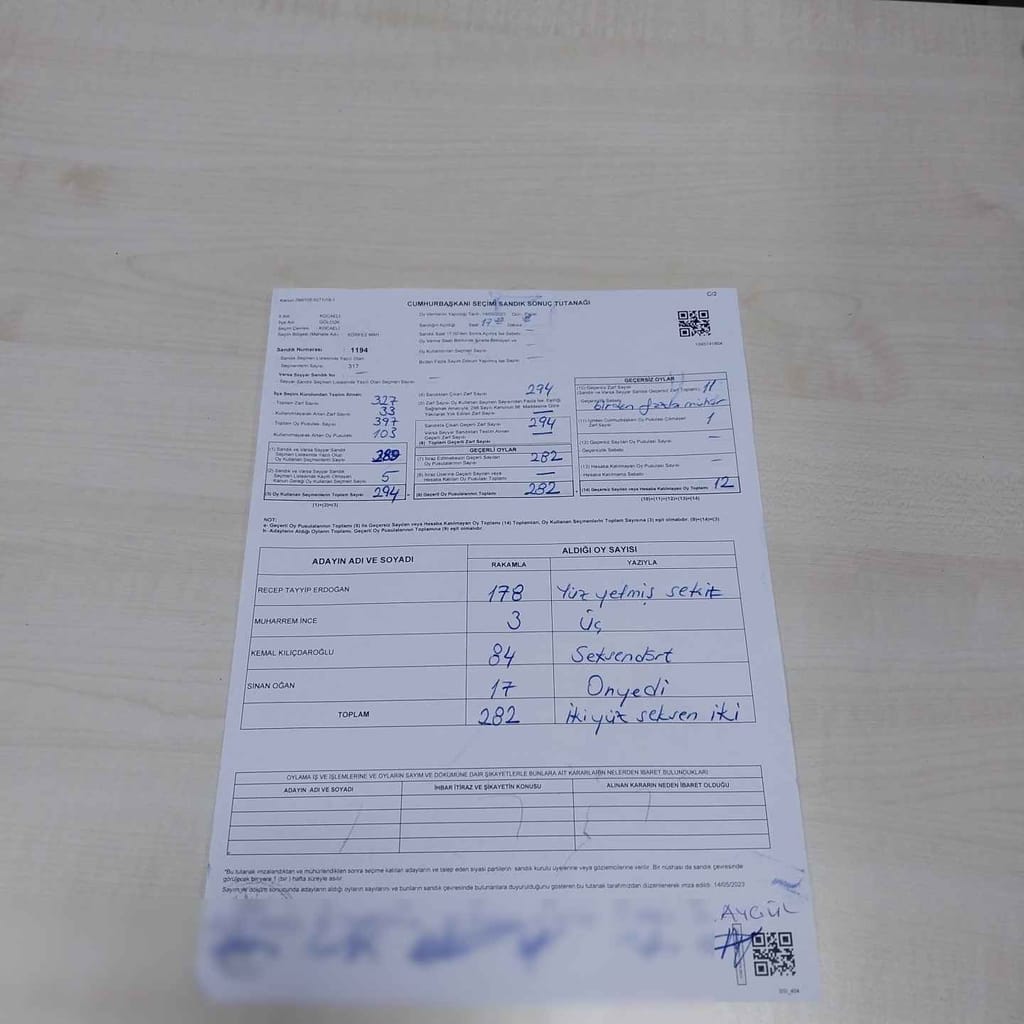 C/2
CUMHURBAŞKANI SEÇİMİ SANDIK SONUÇ TUTANAĞI
İl Adı : KOCAELİ
İlçe Adı : GÖLCÜK
Seçim Çevresi : KOCAELİ
Seçim Bölgesi (Mahalle Adı)
Sandık Numarası : 1194
Sandık Seçmen Listesinde Yazılı Olan
Seçmenlerin Sayısı : 317
Varsa Seyyar Sandık No
Seyyar Sandık Seçmen Listesinde Yazılı Olan Seçmen Sayısı
İlçe Seçim Kurulundan Teslim Alınan
Toplam Zarf Sayısı 327
Kullanılmayarak Artan Zarf Sayısı 33
Toplam Oy Pusulası Sayısı 397
Kullanılmayarak Artan Oy Pusulası 103
(1) Sandık ve Varsa Seyyar Sandık
Seçmen Listesinde Yazılı Olup
Oy Kullanan Seçmenlerin Sayısı 289
5
(3) Oy Kullanan Seçmenlerin Toplam Sayısı 294
(1)+(2)=(3)
(4) Sandıktan Çıkan Zarf Sayısı 294
Sandıkta Çıkan Geçerli Zarf Sayısı 294
(6) Toplam Geçerli Zarf Sayısı
GEÇERLİ OYLAR
(7) İtiraz Edilmeksizin Geçerli Sayılan
Oy Pusulalarının Sayısı 282
(8) İtiraz Üzerine Geçerli Sayılan veya
Hesaba Katılan Oy Pusulalarının Sayısı
(9) Geçerli Oy Pusulalarının Toplamı 282
GEÇERSİZ OYLAR
11
birden fazla mühür
1
(12) Geçersiz Sayılan Oy Pusulası Sayısı
Geçersizlik Sebebi
(13) Hesaba Katılmayan Oy Pusulası Sayısı
Hesaba Katılmama Sebebi
(14) Geçersiz Sayılan veya Hesaba Katılmayan Oy Toplamı 12
(10)+(11)+(12)+(13)=(14)
NOT:
a- Geçerli Oy Pusulalarının Toplamı (9) ile Geçersiz Sayılan veya Hesaba Katılmayan Oy Toplamı (14) Toplamları, Oy Kullanan Seçmenlerin Toplam Sayısına (3) eşit olmalıdır. (9)+(14)=(3)
b- Adayların Aldığı Oyların Toplamı, Geçerli Oy Pusulalarının Toplamına (9) eşit olmalıdır.
ADAYIN ADI VE SOYADI ALDIĞI OY SAYISI
RAKAMLA YAZIYLA
RECEP TAYYİP ERDOĞAN 178 Yüz yetmiş sekiz
MUHARREM İNCE 3 Üç
KEMAL KILIÇDAROĞLU 84 Seksendört
SİNAN OĞAN 17 Onyedi
TOPLAM 282 İkiyüz seksen iki
OYLAMA İŞ VE İŞLEMLERİNE VE OYLARIN SAYIM VE DÖKÜMÜNE DAİR ŞİKAYETLERLE BUNLARA AİT KARARLARIN NELERDEN İBARET BULUNDUKLARI
ADAYIN ADI VE SOYADI İHBAR İTİRAZ VE ŞİKAYETİN KONUSU ALINAN KARARIN NEDEN İBARET OLDUĞU
*Bu tutanak imzalandıktan ve mühürlendikten sonra seçime katılan adayların ve talep eden siyasi partilerin sandık kurulu üyelerine veya gözlemcilerine verilir. Bir nüshası da sandık çevresinde
görülecek bir yere 1 (bir) hafta süreyle asılır.
Sayım ve döküm sonucunda adayların aldığı oyların sayılarını ve bunların sandık çevresinde bulunanlara duyurulduğunu gösteren bu tutanak tarafımızdan düzenlenerek imza edildi. 14/05/2023
AYGÜL